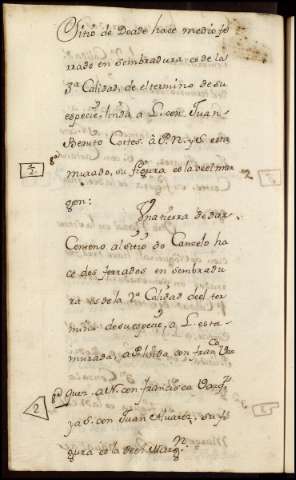 Sitio de Doade hace medio fe
rrado en sembradura, es de la
3ª Calidad, de el termino de su
especie, linda a L. con Juan
Benito Cortes â P. N. y S. esta
murado, su figura es la de el mar
gen:
Yna tierra de dar
Centeno al sitio do Cancelo ha
ce dos ferrados en sembradu
ra es de la 2ª Calidad de el ter
mino de su especie, a L. esta
murada, a P. linda con franco
quez, a N. con francisca
y a S. con Juan Alvarez, su fi
gura es la de el Margn
2